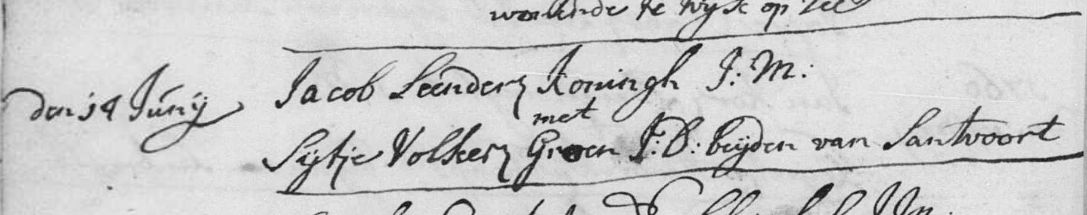 woonende te Wijk op Zee
den 14 Junij Jacob Leenderz Koningh J: M:
met
Sijtje Volkerz Groen J: D: beijden van Santvoort